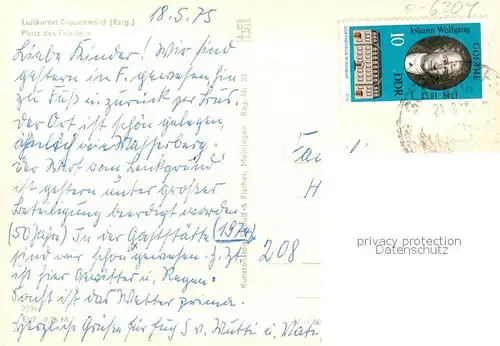 Luftkurort Frauenwald (Rstg.)
Platz des Friedens
18.5.75
Liebe Kinder! Wir sind
gestern in F. gewesen, hin
zu Fuß u. zurück per Bus.
Der Ort ist schön gelegen,
ähnlich wie Masserberg.
Der Wirt vom Lenkgrund
ist gestern unter großer
Beteiligung beerdigt worden
(50 Jahre) In der Gaststätte (1974)
sind wir schön gewesen. z. Zt.
ist hier Gewitter u. Regen.
Sonst ist das Wetter prima.
Herzliche Grüße für Euch 3 v. Mutti u. Vati
EVP
Kunstanstalt Straub & Fischer, Meiningen Reg. Nr. 23
208
e-6304
Johann Wolfgang
GOETHE
1749-1832
DDR
10
privacy protection
Datenschutz